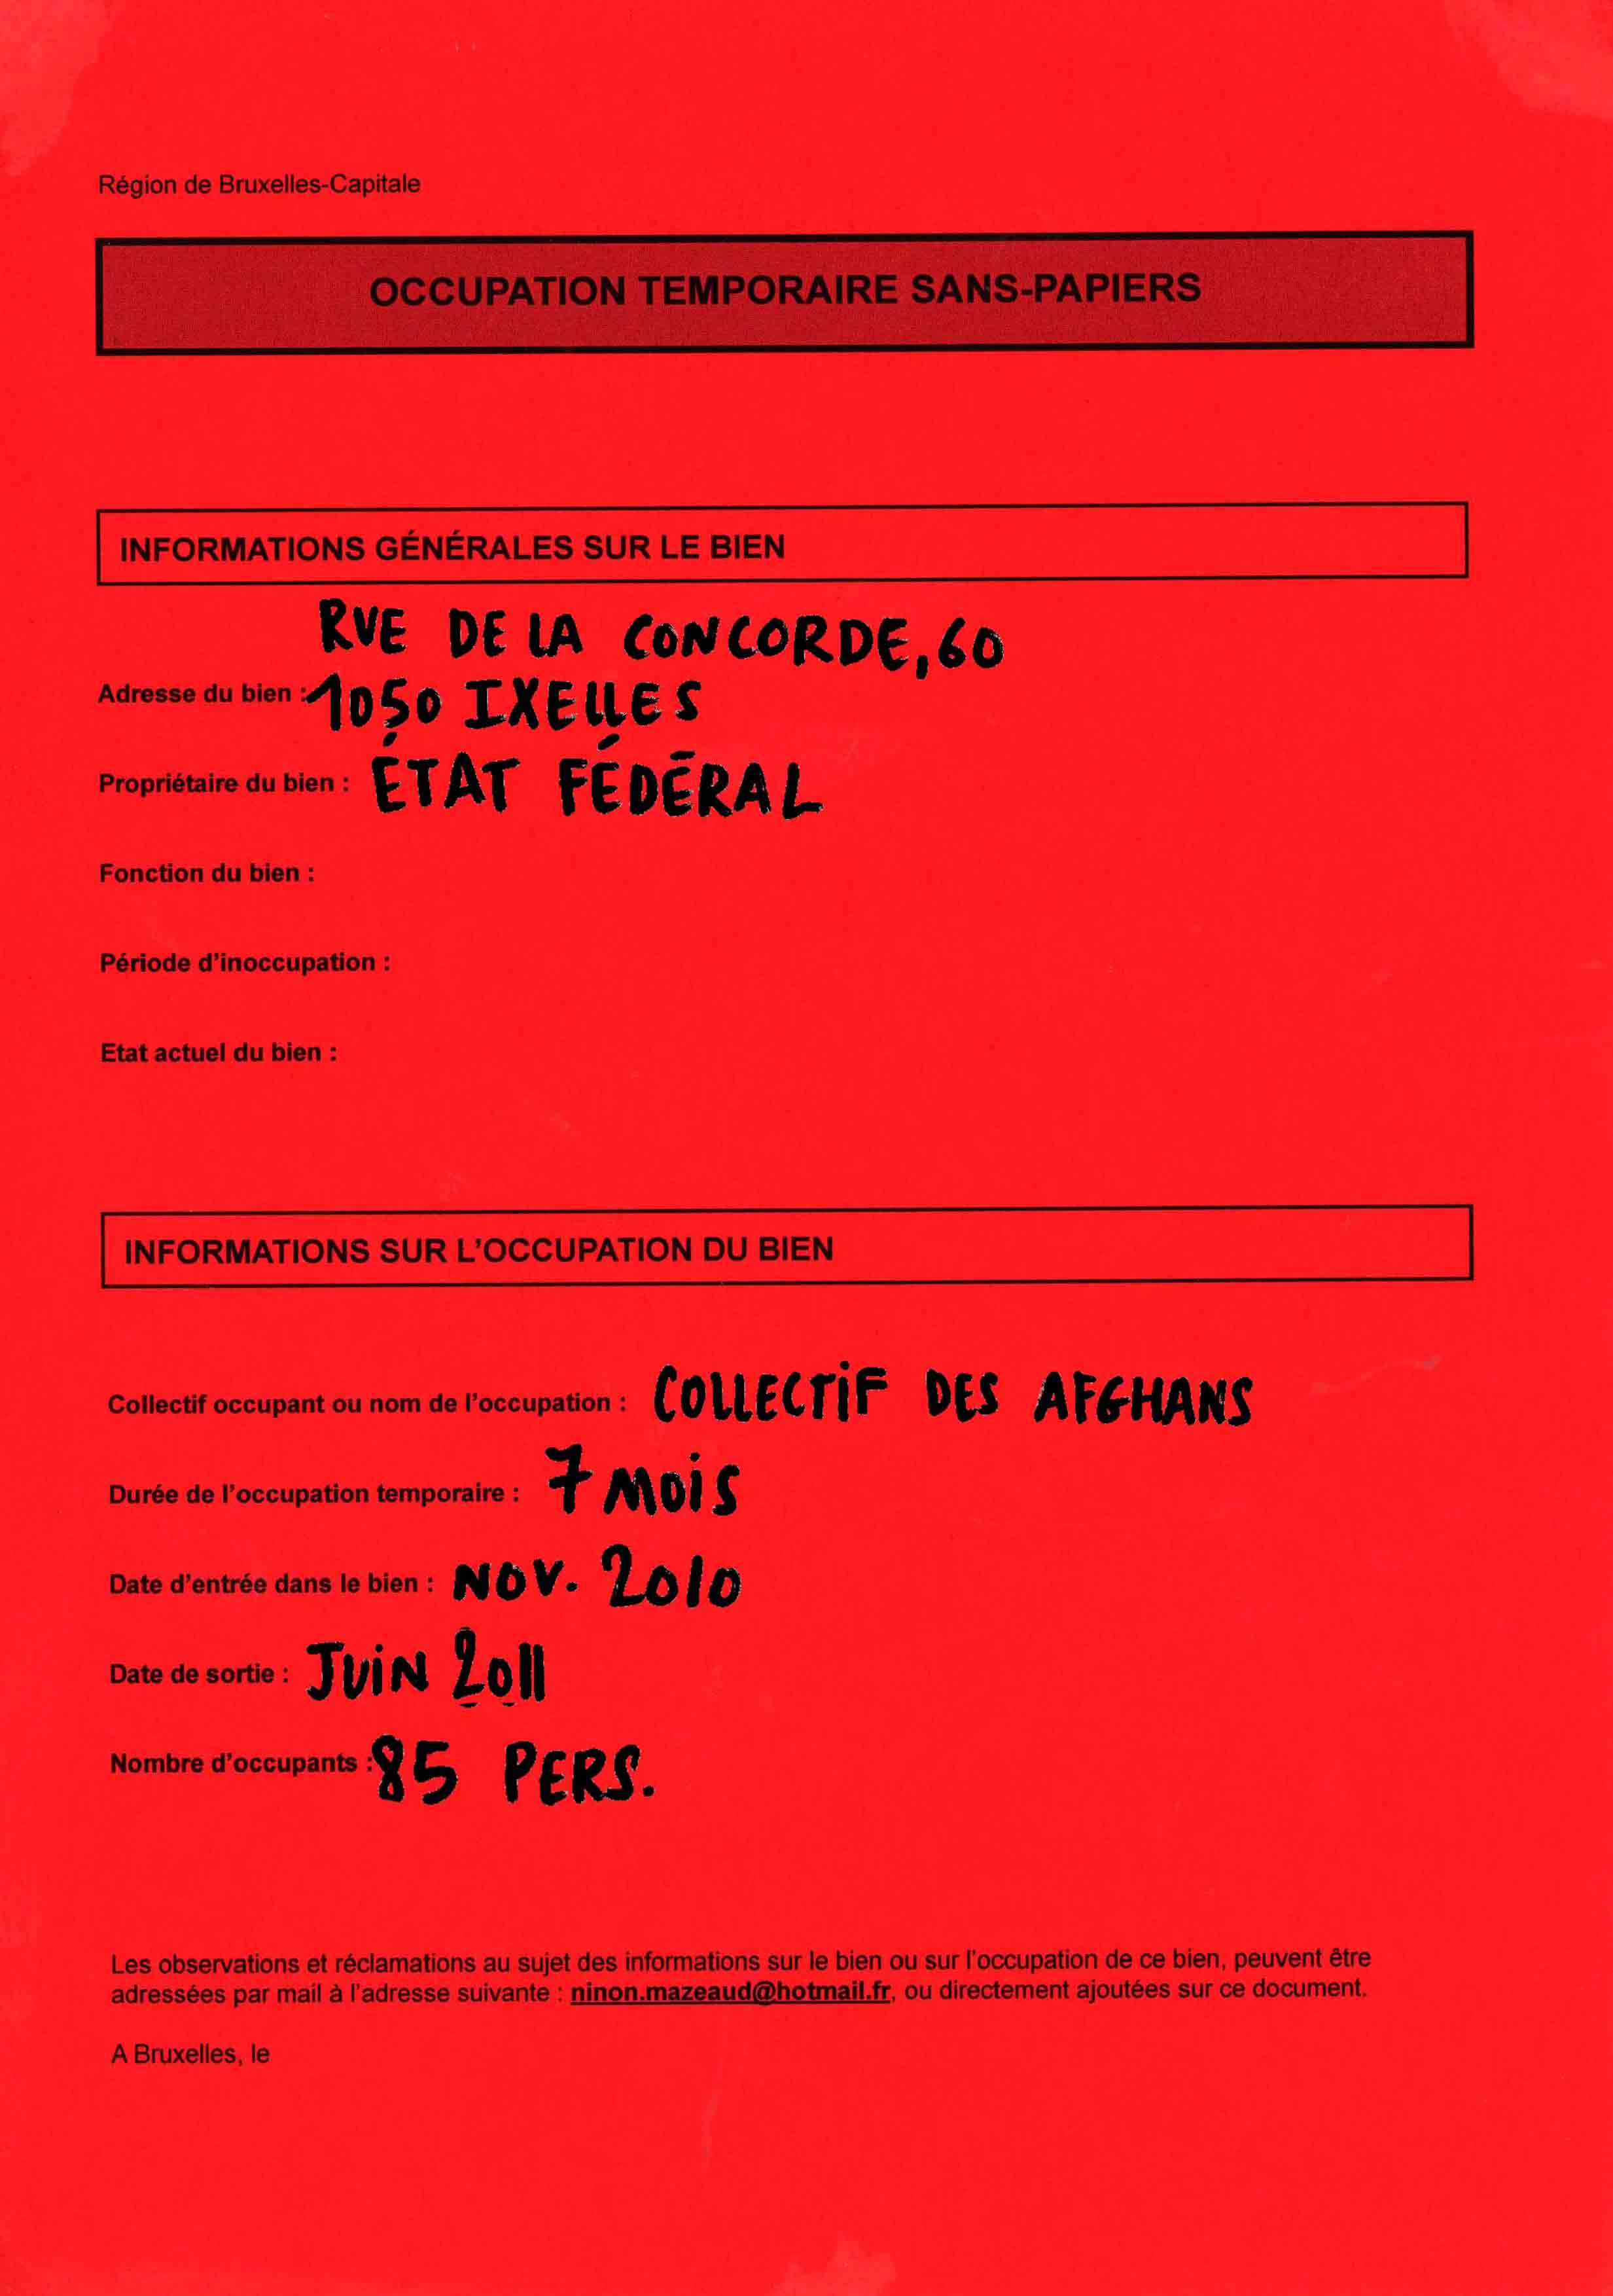 Région de Bruxelles-Capitale
OCCUPATION TEMPORAIRE SANS-PAPIERS
INFORMATIONS GÉNÉRALES SUR LE BIEN
RUE DE LA CONCORDE, 60
Adresse du bien : 1050 IXELLES
Propriétaire du bien : ÉTAT FÉDÉRAL
Fonction du bien :
Période d'inoccupation :
Etat actuel du bien :
INFORMATIONS SUR L'OCCUPATION DU BIEN
Collectif occupant ou nom de l'occupation : COLLECTiF DES AFGHANS
Durée de l'occupation temporaire : 7 MOiS
Date d'entrée dans le bien : NOV. 2010
Date de sortie : JUiN 2011
Nombre d'occupants : 85 PERS.
Les observations et réclamations au sujet des informations sur le bien ou sur l'occupation de ce bien, peuvent être
adressées par mail à l'adresse suivante : ninon.mazeaud@hotmail.fr, ou directement ajoutées sur ce document.
A Bruxelles, le